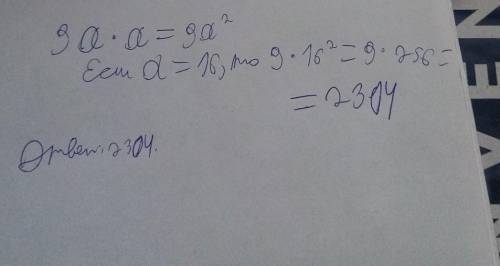 9a · a = 9a²
Если a = 16, то 9 · 16² = 9 · 256 =
= 2304
Ответ: 2304.